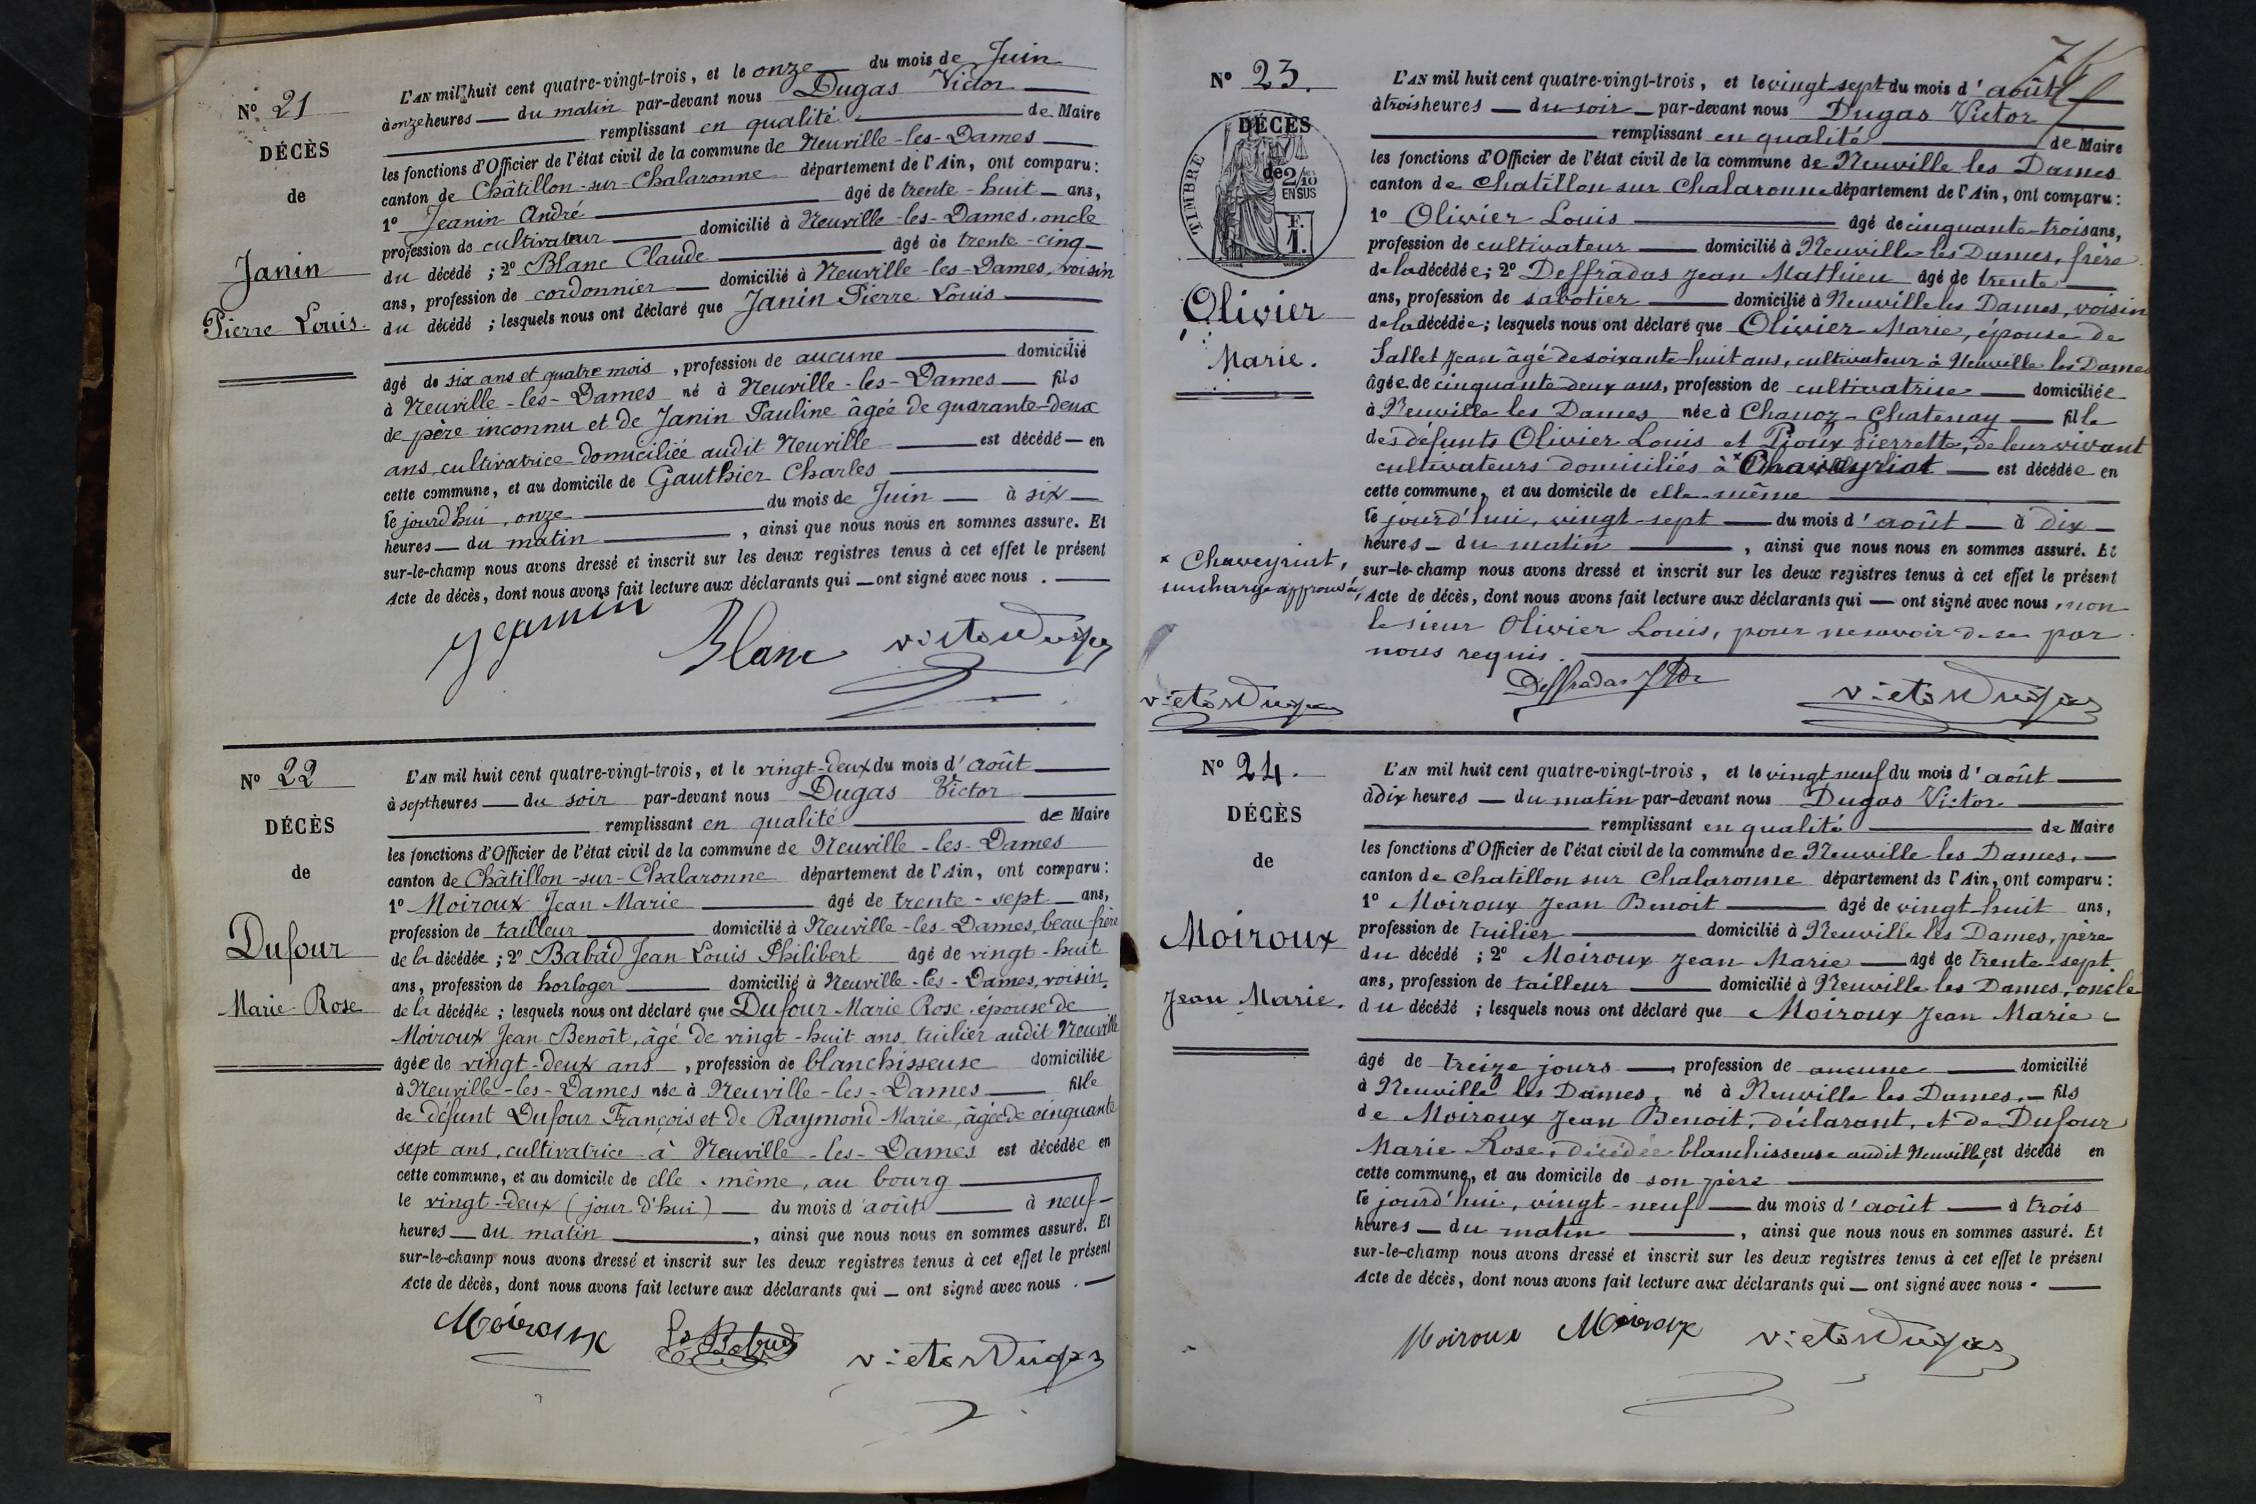 N° 21
DÉCÈS
de
Janin
Pierre Louis.
L'AN mil huit cent quatre-vingt-trois, et le onze du mois de Juin
à onze heures — du matin par-devant nous Dugas Victor
remplissant en qualité de Maire
les fonctions d'Officier de l'état civil de la commune de Neuville-les-Dames
canton de Châtillon-sur-Chalaronne département de l'Ain, ont comparu :
1° Jeanin André âgé de trente-huit — ans,
profession de cultivateur domicilié à Neuville-les-Dames, oncle
du décédé ; 2° Blanc Claude âgé de trente-cinq
ans, profession de cordonnier domicilié à Neuville-les-Dames, voisin
du décédé ; lesquels nous ont déclaré que Janin Pierre Louis
âgé de six ans et quatre mois, profession de aucune domicilié
à Neuville-les-Dames né à Neuville-les-Dames — fils
de père inconnu et de Janin Pauline âgée de quarante-deux
ans, cultivatrice domiciliée audit Neuville est décédé — en
cette commune, et au domicile de Gauthier Charles
le jourd'hui, onze du mois de Juin — à six —
heures — du matin, ainsi que nous nous en sommes assuré. Et
sur-le-champ nous avons dressé et inscrit sur les deux registres tenus à cet effet le présent
Acte de décès, dont nous avons fait lecture aux déclarants qui — ont signé avec nous. —
Jeanin Blanc Victor Dugas
N° 22
DÉCÈS
de
Dufour
Marie Rose
L'AN mil huit cent quatre-vingt-trois, et le vingt-deux du mois d'août
à sept heures — du soir par-devant nous Dugas Victor
remplissant en qualité de Maire
les fonctions d'Officier de l'état civil de la commune de Neuville-les-Dames
canton de Châtillon-sur-Chalaronne département de l'Ain, ont comparu :
1° Moiroux Jean Marie âgé de trente-sept — ans,
profession de tailleur domicilié à Neuville-les-Dames, beau-frère
de la décédée ; 2° Babad Jean Louis Philibert âgé de vingt-huit
ans, profession de horloger domicilié à Neuville-les-Dames, voisin,
de la décédée ; lesquels nous ont déclaré que Dufour Marie Rose, épouse de
Moiroux Jean Benoît, âgé de vingt-huit ans, tuilier audit Neuville
âgée de vingt-deux ans, profession de blanchisseuse domiciliée
à Neuville-les-Dames née à Neuville-les-Dames — fille
de défunt Dufour François et de Raymond Marie, âgée de cinquante
sept ans, cultivatrice à Neuville-les-Dames est décédée en
cette commune, et au domicile de elle-même, au bourg
le vingt-deux (jour d'hui) — du mois d'août — à neuf —
heures — du matin, ainsi que nous nous en sommes assuré. Et
sur-le-champ nous avons dressé et inscrit sur les deux registres tenus à cet effet le présent
Acte de décès, dont nous avons fait lecture aux déclarants qui — ont signé avec nous. —
Moiroux Ls Babad Victor Dugas
76
N° 23.
DÉCÈS
de
TIMBRE
2/10
EN SUS
F.
1.
Olivier
Marie.
L'AN mil huit cent quatre-vingt-trois, et le vingt-sept du mois d'août
à trois heures — du soir — par-devant nous Dugas Victor
remplissant en qualité de Maire
les fonctions d'Officier de l'état civil de la commune de Neuville les Dames
canton de Chatillon sur Chalaronne département de l'Ain, ont comparu :
1° Olivier Louis âgé de cinquante-trois ans,
profession de cultivateur domicilié à Neuville les Dames, frère
de la décédée ; 2° Deffradas Jean Mathieu âgé de trente
ans, profession de sabotier domicilié à Neuville les Dames, voisin
de la décédée ; lesquels nous ont déclaré que Olivier Marie, épouse de
Sallet Jean âgé de soixante-huit ans, cultivateur à Neuville les Dames
âgée de cinquante deux ans, profession de cultivatrice domiciliée
à Neuville les Dames née à Chanoz-Chatenay — fille
des défunts Olivier Louis et Pioux Pierrette, de leur vivant
cultivateurs domiciliés à * Chaveyriat est décédée en
cette commune, et au domicile de elle-même
le jourd'hui, vingt-sept — du mois d'août — à dix —
heures — du matin, ainsi que nous nous en sommes assuré. Et
* Chaveyriat,
surcharge approuvée,
sur-le-champ nous avons dressé et inscrit sur les deux registres tenus à cet effet le présent
Acte de décès, dont nous avons fait lecture aux déclarants qui — ont signé avec nous, non
le sieur Olivier Louis, pour ne savoir de ce par
nous requis.
Victor Dugas Deffradas Victor Dugas
N° 24.
DÉCÈS
de
Moiroux
Jean Marie.
L'AN mil huit cent quatre-vingt-trois, et le vingt neuf du mois d'août
à dix heures — du matin par-devant nous Dugas Victor
remplissant en qualité de Maire
les fonctions d'Officier de l'état civil de la commune de Neuville les Dames. —
canton de Chatillon sur Chalaronne département de l'Ain, ont comparu :
1° Moiroux Jean Benoit âgé de vingt-huit ans,
profession de tuilier domicilié à Neuville les Dames, père
du décédé ; 2° Moiroux Jean Marie — âgé de trente-sept
ans, profession de tailleur domicilié à Neuville les Dames, oncle
du décédé ; lesquels nous ont déclaré que Moiroux Jean Marie
âgé de treize jours —, profession de aucune domicilié
à Neuville les Dames, né à Neuville les Dames, — fils
de Moiroux Jean Benoit, déclarant, et de Dufour
Marie Rose, décédée blanchisseuse audit Neuville, est décédé en
cette commune, et au domicile de son père
le jourd'hui, vingt-neuf — du mois d'août — à trois
heures — du matin, ainsi que nous nous en sommes assuré. Et
sur-le-champ nous avons dressé et inscrit sur les deux registres tenus à cet effet le présent
Acte de décès, dont nous avons fait lecture aux déclarants qui — ont signé avec nous. —
Moiroux Moiroux Victor Dugas